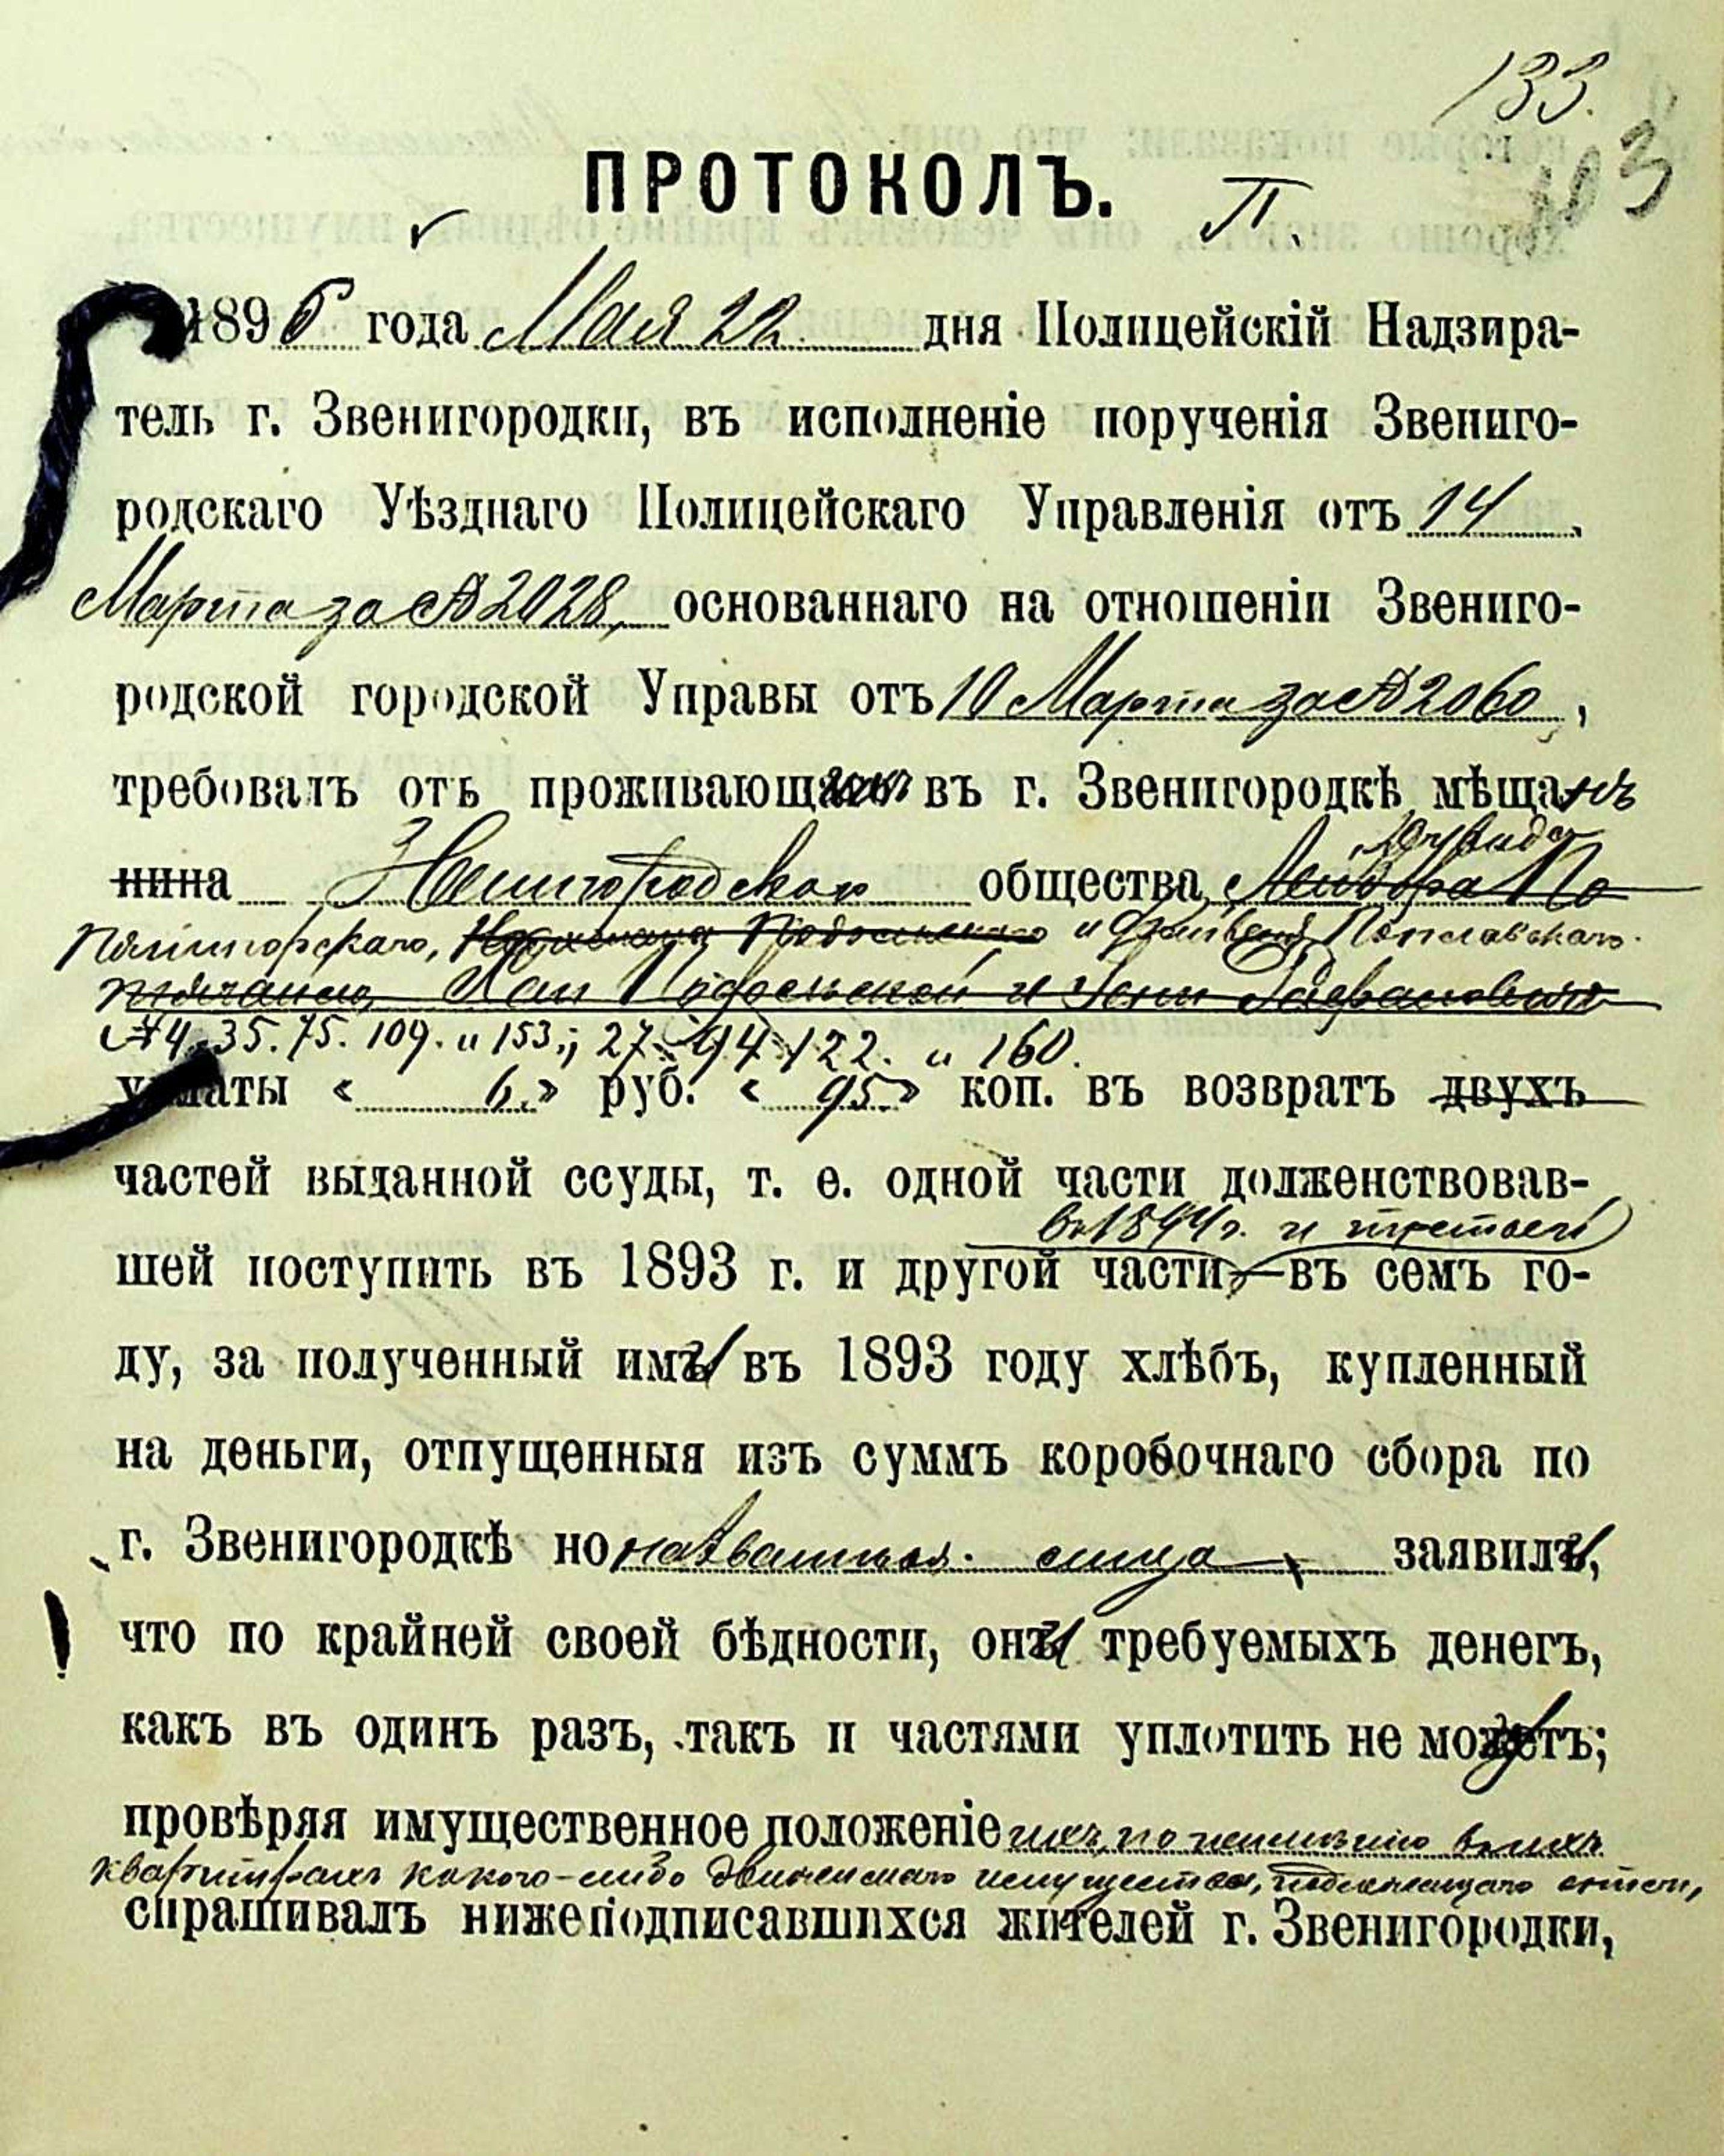 133.
103
ПРОТОКОЛЪ. П.
1895 года Мая 22 дня Полицейскій Надзира-
тель г. Звенигородки, въ исполненіе порученія Звениго-
родскаго Уѣзднаго Полицейскаго Управленія отъ 14
Марта за № 2028, основаннаго на отношеніи Звениго-
родской городской Управы отъ 10 Марта за № 2060,
требовалъ отъ проживающихъ въ г. Звенигородкѣ мѣщанъ
нина Звенигородскаго общества
Пятигорскаго, и Поплавскаго.
и
№ 4. 35. 75. 109. и 153.; 27. 94. 122. и 160.
уплаты « 6. » руб. « 95 » коп. въ возвратъ двухъ
частей выданной ссуды, т. е. одной части долженствовав-
въ 1894 г. и третьей
шей поступить въ 1893 г. и другой части въ семъ го-
ду, за полученный ими въ 1893 году хлѣбъ, купленный
на деньги, отпущенныя изъ суммъ коробочнаго сбора по
г. Звенигородкѣ но названныя лица заявили,
что по крайней своей бѣдности, они требуемыхъ денегъ,
какъ въ одинъ разъ, такъ и частями уплотить не могутъ;
провѣряя имущественное положеніе ихъ, по неимѣнію въ ихъ
квартирахъ какого-либо движимаго имущества, подлежащаго описи,
спрашивалъ нижеподписавшихся жителей г. Звенигородки,